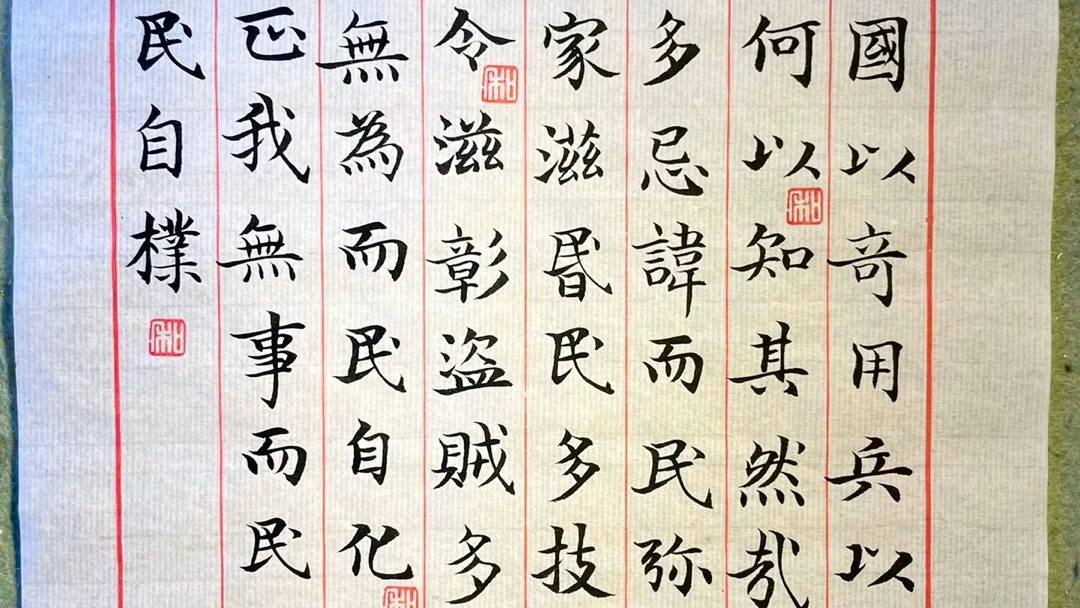 國以竒用兵以
何以知其然哉
多忌諱而民弥
家滋昬民多技
令滋彰盜賊多
無為而民自化
正我無事而民
民自樸
和
和
和
和